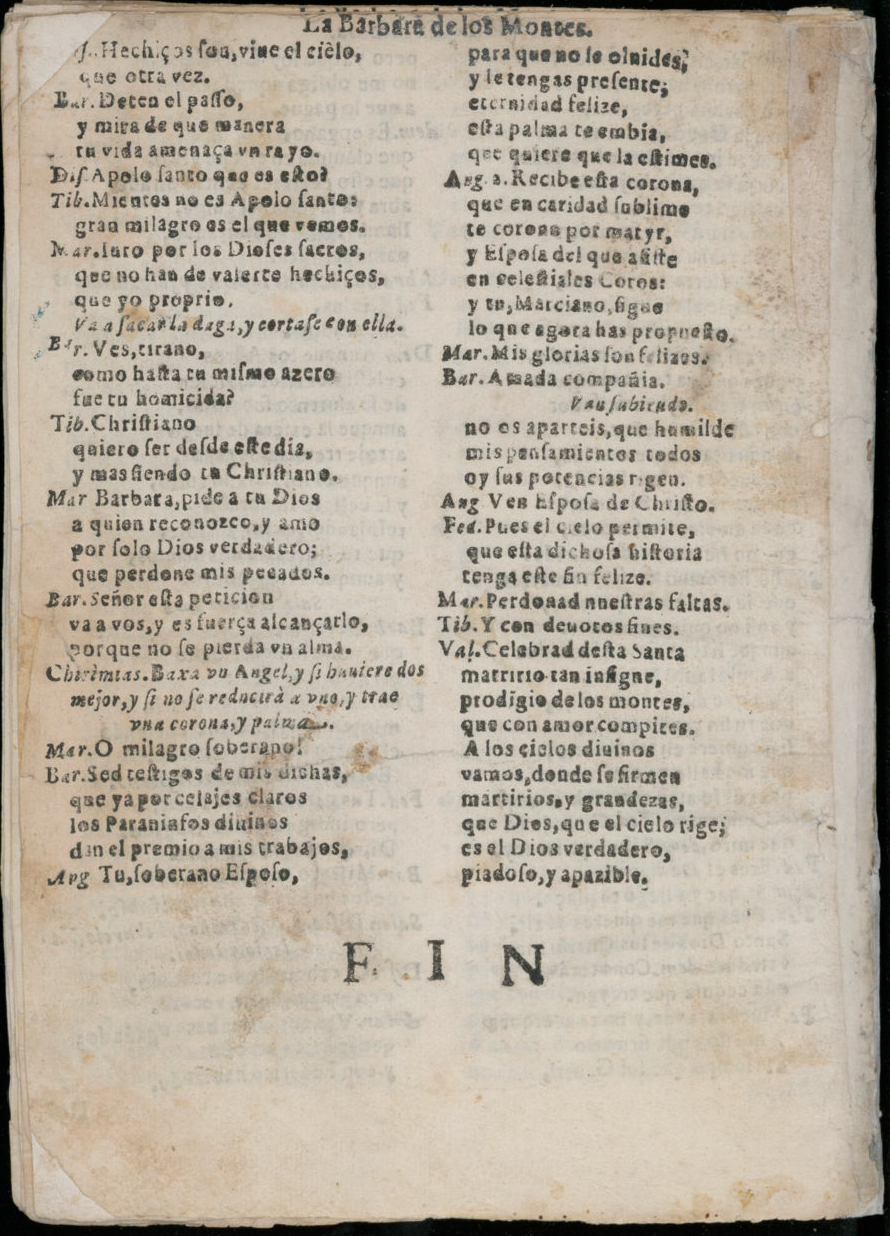 La Barbara de los Montes.
Hechiços son, viue el ciélo,
que otra vez.
Bar. Deten el passo,
y mira de que manera
tu vida amenaça vn rayo.
Dis. Apolo santo que es esto?
Tib. Mientes no es Apolo santo:
gran milagro es el que vemos.
Mar. Iuro por los Dioses sacros,
que no han de valerte hechiços,
que yo proprio.
Va a sacar la daga, y cortase con ella.
Bar. Ves, tirano,
como hasta tu mismo azero
fue tu homicida?
Tib. Christiano
quiero ser desde este dia,
y mas siendo tu Christiano.
Mar Barbara, pide a tu Dios
a quien reconozco, y amo
por solo Dios verdadero;
que perdone mis pecados.
Bar. Señor esta peticion
va a vos, y es fuerça alcançarlo,
porque no se pierda vn alma.
Chirimias. Baxa vn Angel, y si huuiere dos
mejor, y si no se reducirà a vno, y trae
vna corona, y palma.
Mar. O milagro soberano!
Bar. Sed testigos de mis dichas,
que ya por celajes claros
los Paraninfos diuinos
dan el premio a mis trabajos,
Ang Tu, soberano Esposo,
para que no le oluides,
y le tengas presente;
eternidad felize,
esta palma te embia,
que quiere que la estimes.
Ang. 2. Recibe esta corona,
que en caridad sublime
te corona por matyr,
y Esposa del que assiste
en celestiales Coros:
y tu, Marciano, sigue
lo que agora has propuesto.
Mar. Mis glorias son felizes.
Bar. Amada compañia.
Van subiendo.
no os aparteis, que humilde
mis pensamientos todos
oy sus potencias rigen.
Ang Ven Esposa de Christo.
Fed. Pues el cielo permite,
que esta dichosa historia
tenga este fin felize.
Mar. Perdonad nuestras faltas.
Tib. Y con deuotos fines.
Val. Celebrad desta Santa
matririo tan insigne,
prodigio de los montes,
que con amor compites.
A los cielos diuinos
vamos, donde se firmen
martirios, y grandezas,
que Dios, que el cielo rige;
es el Dios verdadero,
piadoso, y apazible.
F I N